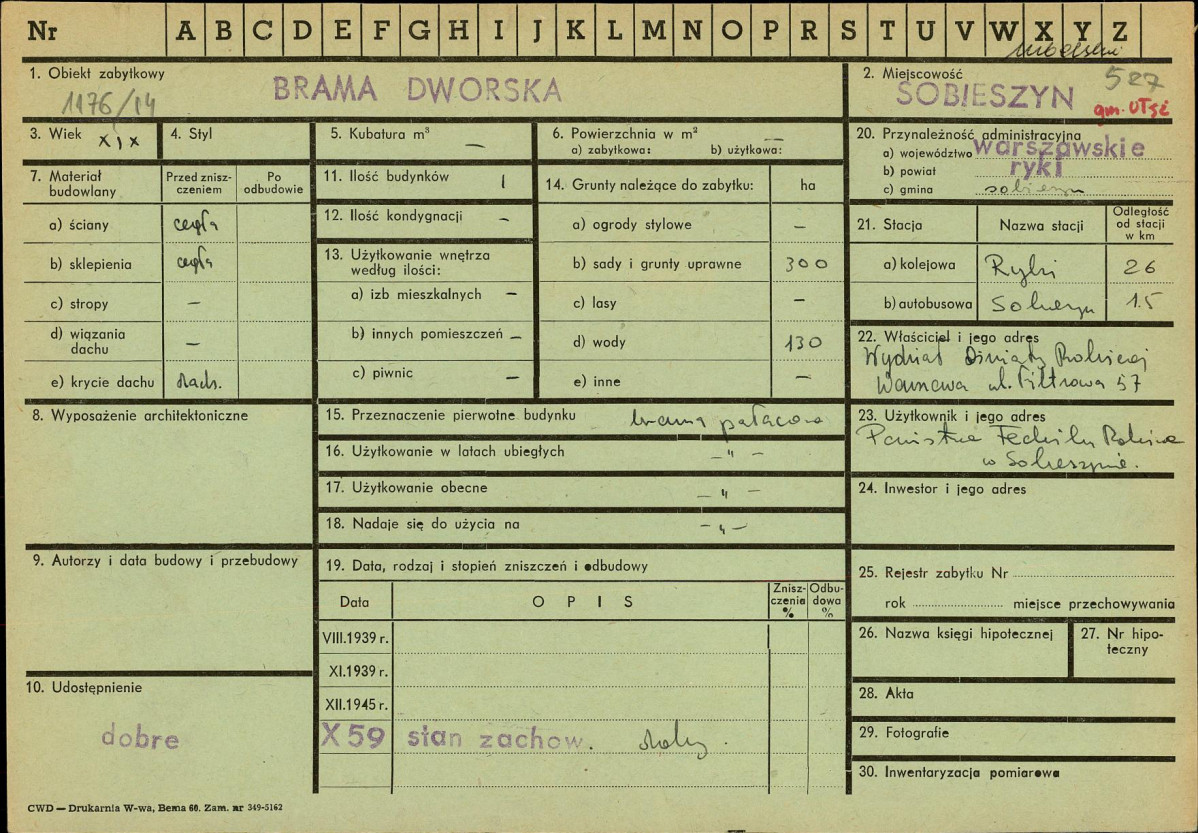 Nr A B C D E F G H I J K L M N O P R S T U V W X Y Z
1. Obiekt zabytkowy
1176/14
BRAMA DWORSKA
2. Miejscowość
527
SOBIESZYN
gm. Ułęż
3. Wiek
XIX
4. Styl
5. Kubatura m³ —
6. Powierzchnia w m² —
a) zabytkowa: b) użytkowa:
20. Przynależność administracyjna
a) województwo warszawskie
b) powiat ryki
c) gmina sobieszyn
7. Materiał budowlany
Przed znisz-
czeniem
Po
odbudowie
a) ściany cegła
b) sklepienia cegła
c) stropy —
d) wiązania
dachu —
e) krycie dachu dach.
11. Ilość budynków 1
12. Ilość kondygnacji —
13. Użytkowanie wnętrza
według ilości:
a) izb mieszkalnych —
b) innych pomieszczeń —
c) piwnic —
14. Grunty należące do zabytku: ha
a) ogrody stylowe —
b) sady i grunty uprawne 300
c) lasy —
d) wody 130
e) inne —
21. Stacja
Nazwa stacji
Odległość
od stacji
w km
a) kolejowa Ryki 26
b) autobusowa Sobieszyn 1.5
22. Właściciel i jego adres
Wydział Oświaty Rolniczej
Warszawa ul. Filtrowa 57
8. Wyposażenie architektoniczne
15. Przeznaczenie pierwotne budynku brama pałacowa
16. Użytkowanie w latach ubiegłych — " —
17. Użytkowanie obecne — " —
18. Nadaje się do użycia na — " —
23. Użytkownik i jego adres
Państwowe Technikum Rolnicze
w Sobieszynie.
24. Inwestor i jego adres
9. Autorzy i data budowy i przebudowy
19. Data, rodzaj i stopień zniszczeń i odbudowy
Data
O P I S
Znisz-
czenia
%
Odbu-
dowa
%
VIII.1939 r.
XI.1939 r.
XII.1945 r.
X 59 stan zachow.
25. Rejestr zabytku Nr
rok miejsce przechowywania
26. Nazwa księgi hipotecznej
27. Nr hipo-
teczny
10. Udostępnienie
dobre
28. Akta
29. Fotografie
30. Inwentaryzacja pomiarowa
CWD — Drukarnia W-wa, Bema 60. Zam. nr 349-5162